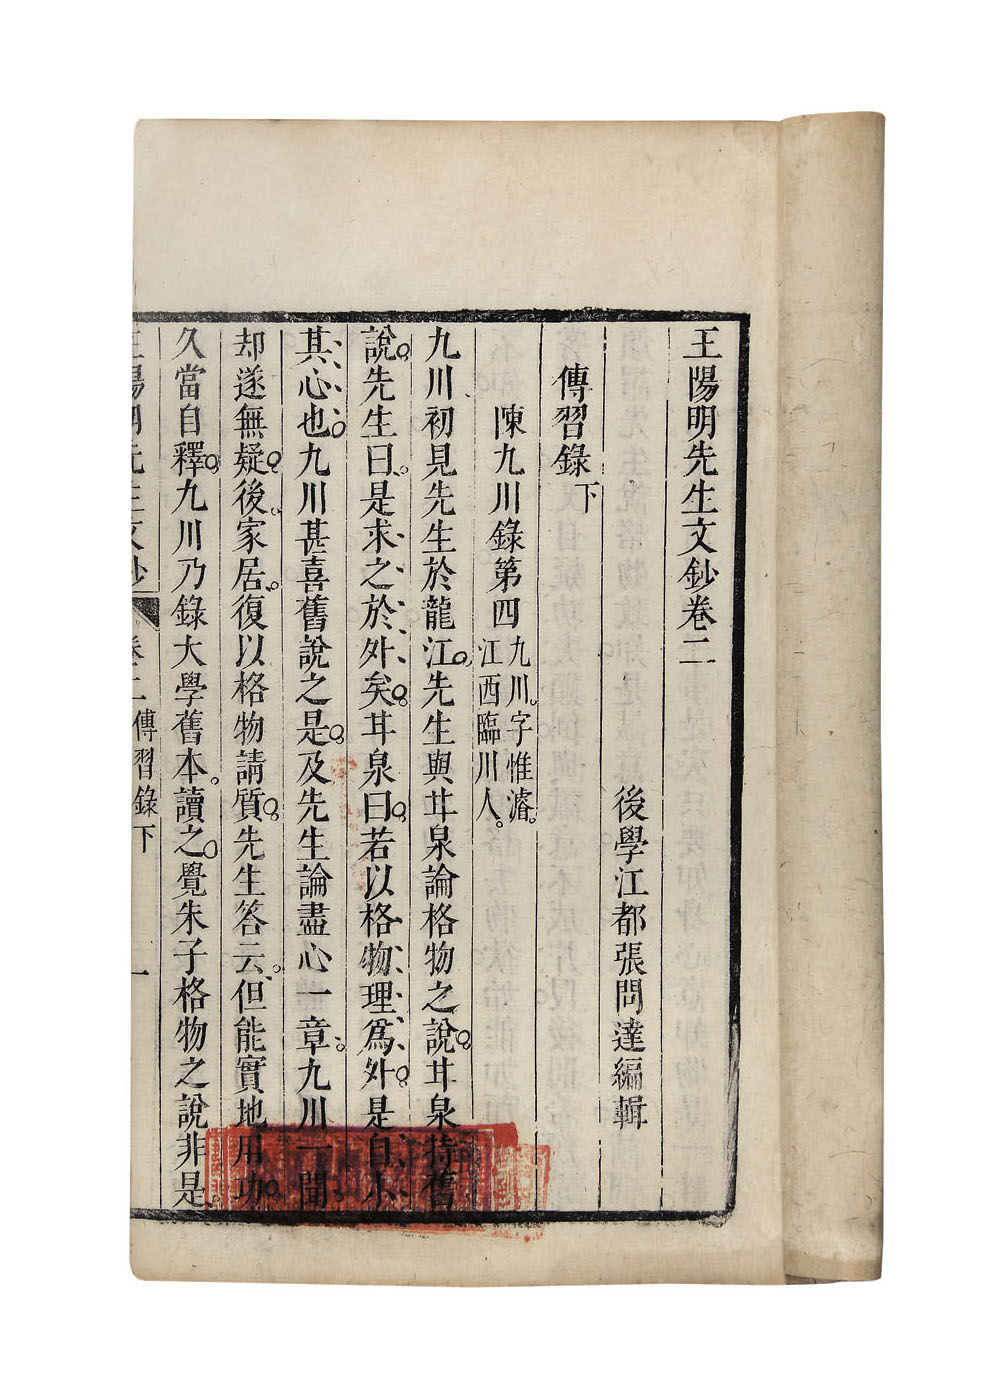 王陽明先生文鈔卷二
後學江都張問達編輯
傳習錄下
陳九川錄第四九川。字惟濬。
江西臨川人。
九川初見先生於龍江。先生與甘泉論格物之說。甘泉持舊
說。先生曰。是求之於外矣。甘泉曰。若以格物理爲外。是自小
其心也。九川甚喜舊說之是。及先生論盡心一章。九川一聞
却遂無疑。後家居。復以格物請質。先生答云。但能實地用功。
久當自釋。九川乃錄大學舊本。讀之。覺朱子格物之說非是。
王陽明先生文鈔 卷二 傳習錄下 一